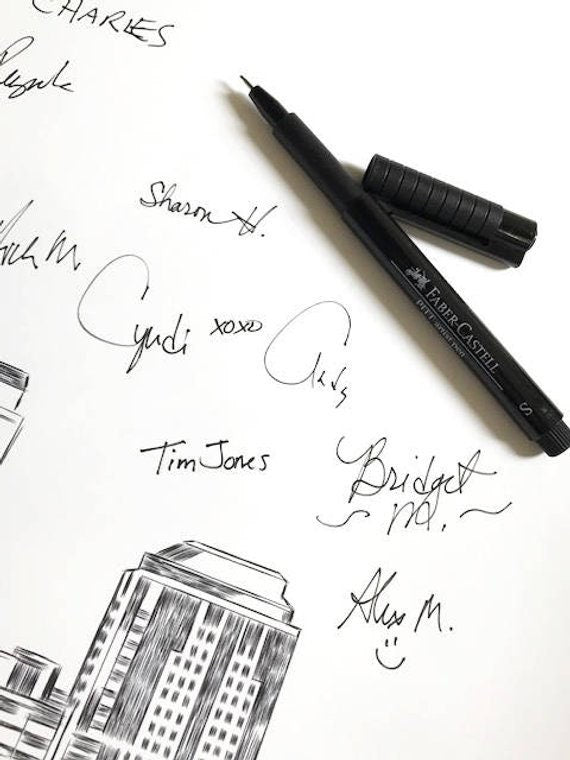 CHARLES
Sharon H.
M.
Cyndi xoxo
Chris
Tim Jones
Bridget
M.
Alex M.
FABER-CASTELL
PITT artist pen
S